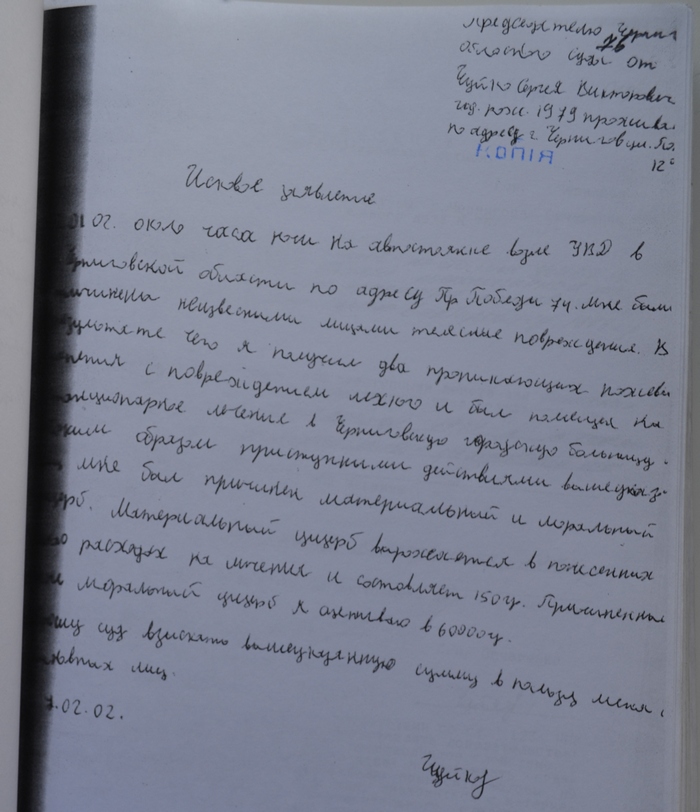 председателю Черниг
областного суда от
76
Чуйко Сергея Викторович
год. рож. 1979 прожива
по адресу г. Чернигов
КОПІЯ
12
Исковое заявление
01 02. около часа ночи на автостоянке возле УВД в
Черниговской области по адресу Пр. Победы 74. мне были
причинены неизвесными лицами телесные повреждения. В
результате чего я получил два проникающих ножевы
с повреждением лехкого и был помещен на
стационарное лечение в Черниговскую городскую больницу.
образом приступними действиями вышеуказ
мне был причинен материальный и моральный
щерб. Материальный ущерб выражается в понесенных
расходах на лечения и составляет 150 гр. Причиненны
моральный ущерб я оцениваю в 60000 гр.
суд взыскать вышеуказанную сумму в пользу меня с
новных лиц.
.02.02.
Чуйко